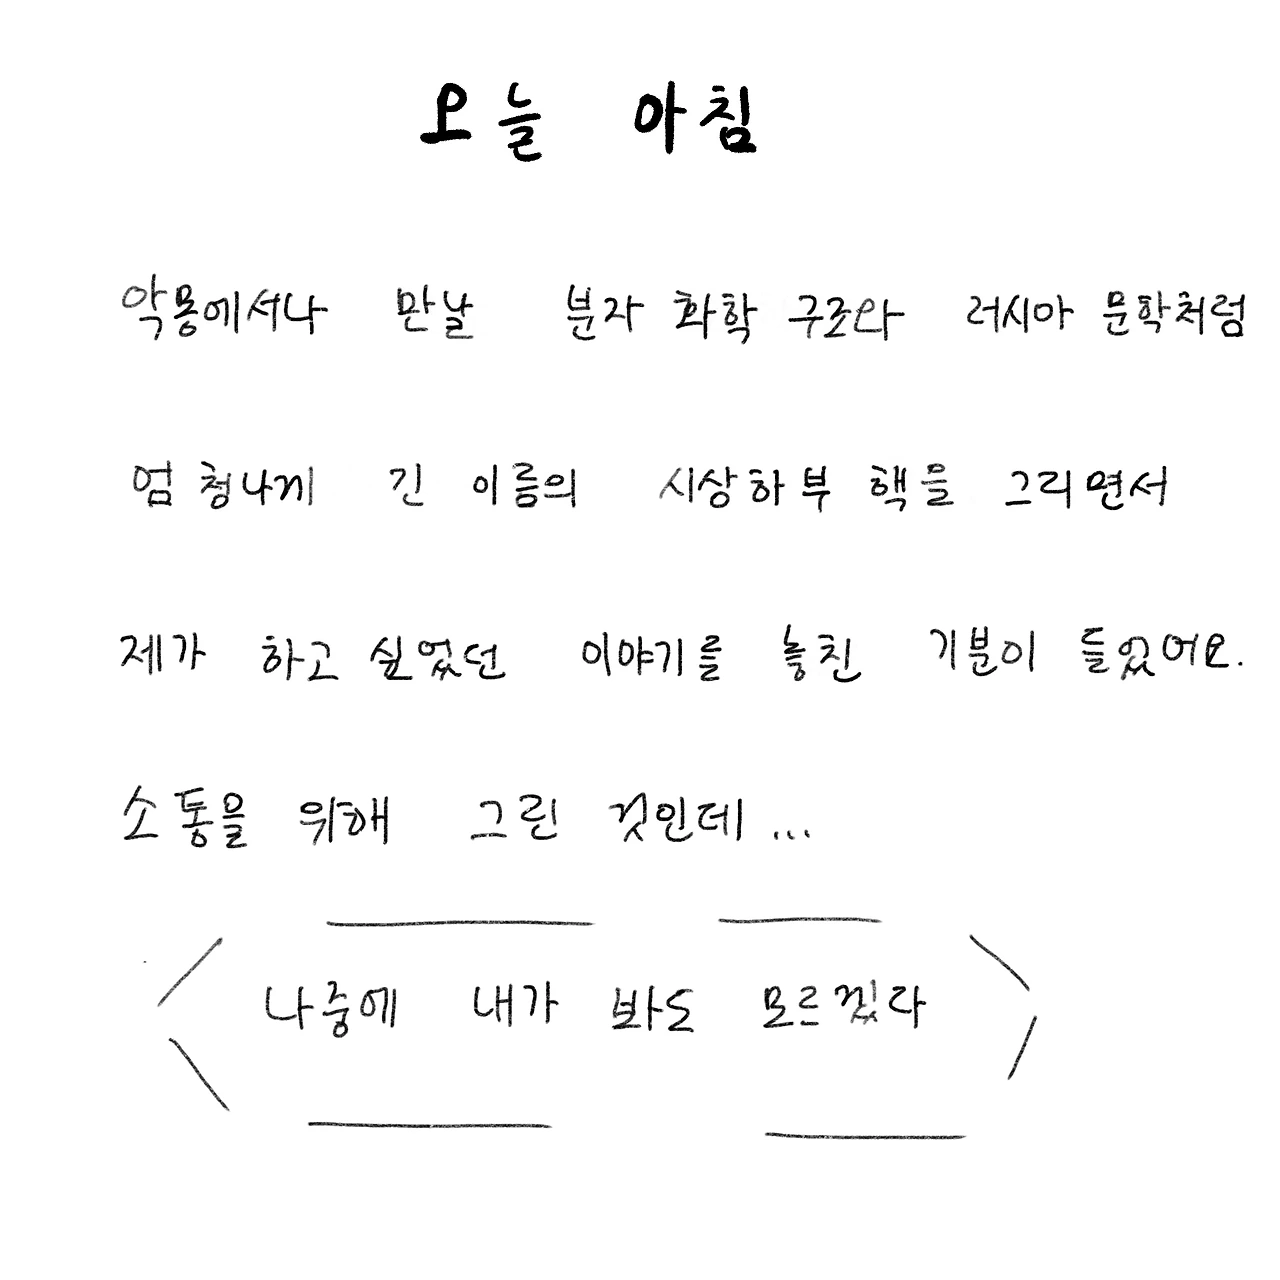 오늘 아침
악몽에서나 만날 분자 화학 구조와 러시아 문학처럼
엄청나게 긴 이름의 시상하부 핵을 그리면서
제가 하고 싶었던 이야기를 놓친 기분이 들었어요.
소통을 위해 그린 것인데...
나중에 내가 봐도 모르겠다